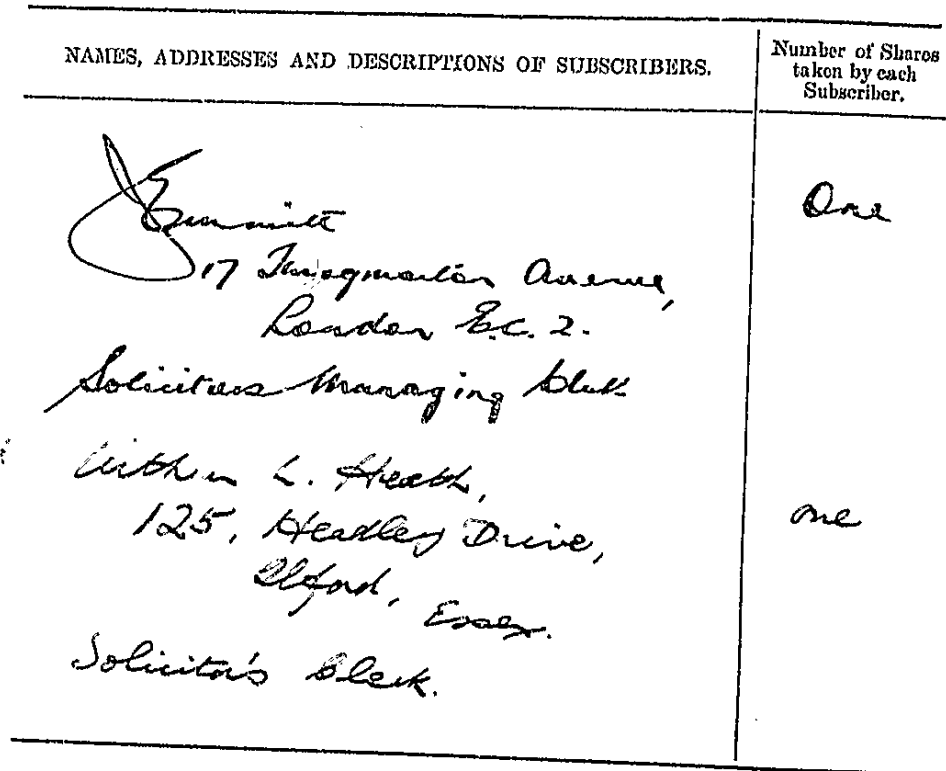 NAMES, ADDRESSES AND DESCRIPTIONS OF SUBSCRIBERS.
Number of Shares
taken by each
Subscriber.
One
17 Throgmorton Avenue,
London E.C. 2.
Solicitors Managing Clerk
Arthur L. Heath,
one
125, Headley Drive,
Ilford,
Essex.
Solicitor's Clerk.